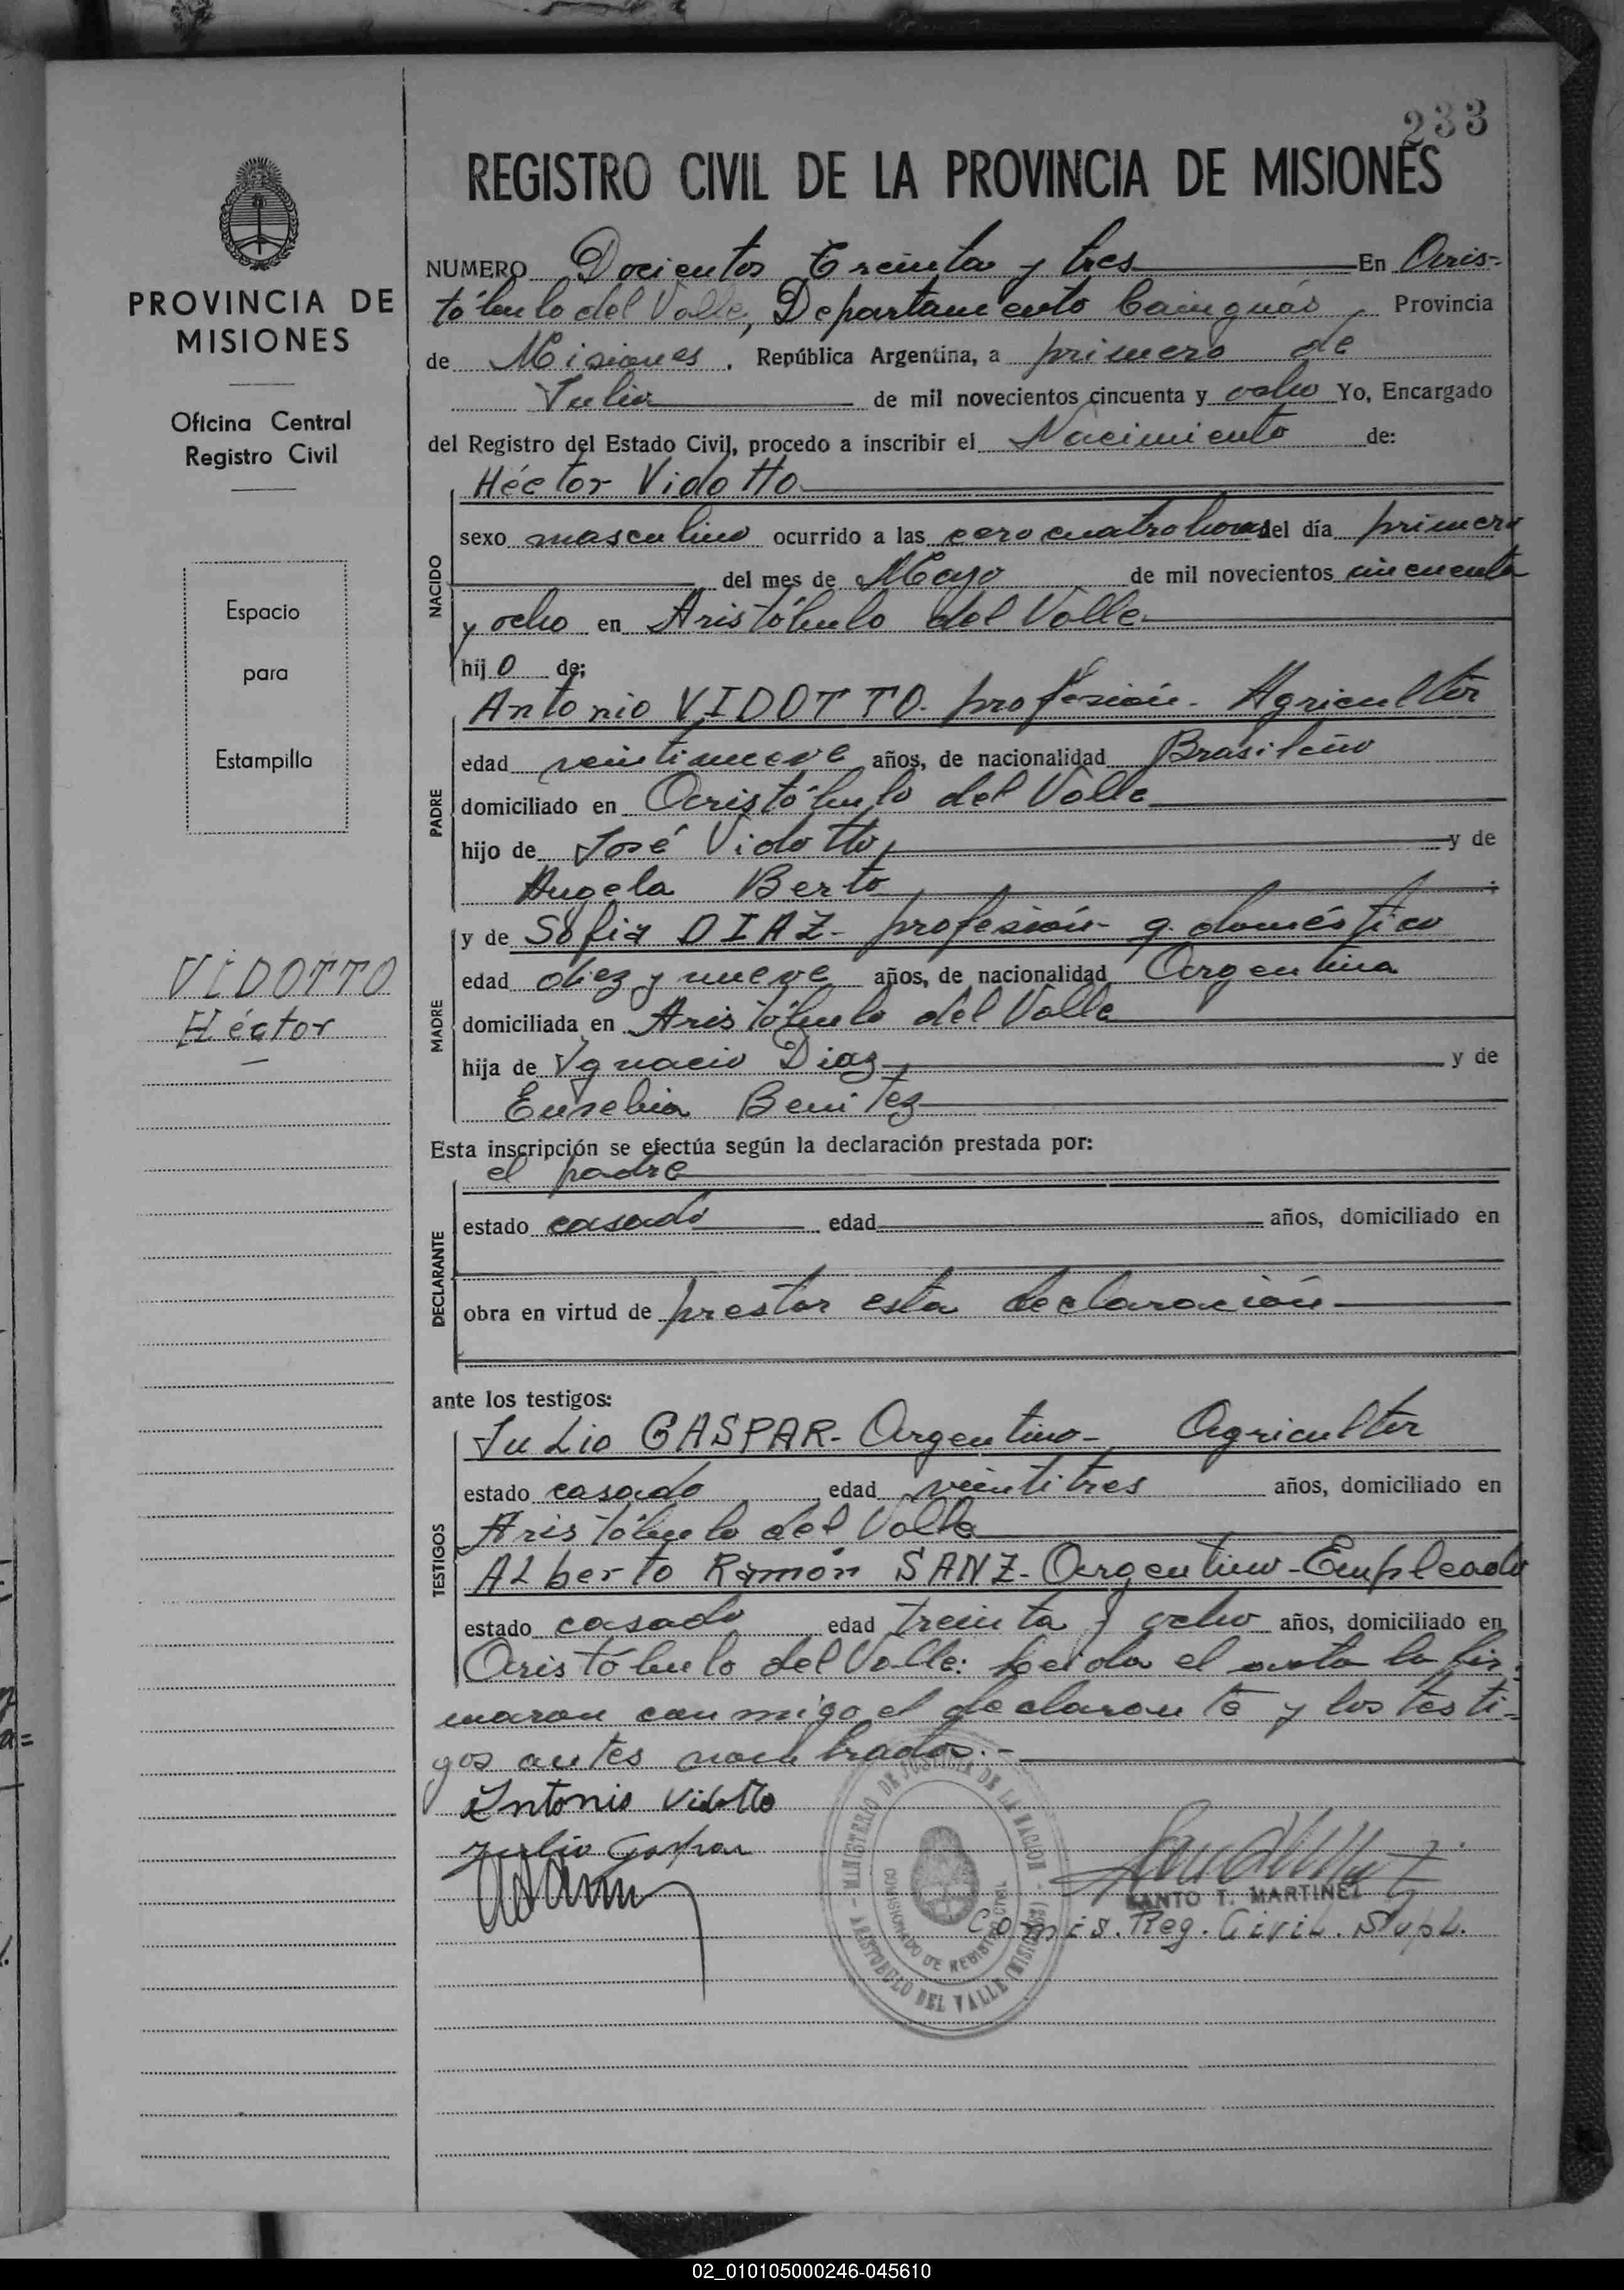 233
REGISTRO CIVIL DE LA PROVINCIA DE MISIONES
PROVINCIA DE
MISIONES
Oficina Central
Registro Civil
Espacio
para
Estampilla
VIDOTTO
Héctor
NUMERO Docientos Treinta y tres En Aris-
tóbulo del Valle, Departamento Cainguás, Provincia
de Misiones, República Argentina, a primero de
Julio de mil novecientos cincuenta y ocho Yo, Encargado
del Registro del Estado Civil, procedo a inscribir el Nacimiento de:
NACIDO
Héctor Vidotto
sexo masculino ocurrido a las cero cuatro horas del día primero
del mes de Mayo de mil novecientos cincuenta
y ocho en Aristóbulo del Valle
hij o de:
PADRE
Antonio VIDOTTO. profesión - Agricultor
edad veintinueve años, de nacionalidad Brasileño
domiciliado en Aristóbulo del Valle
hijo de José Vidotto, y de
Angela Berto ;
MADRE
y de Sofia DIAZ - profesión - q. doméstico
edad diez y nueve años, de nacionalidad Argentina
domiciliada en Aristóbulo del Valle
hija de Ygnacio Diaz y de
Eusebia Benitez
Esta inscripción se efectúa según la declaración prestada por:
DECLARANTE
el padre
estado casado edad años, domiciliado en
obra en virtud de prestar esta declaración
ante los testigos:
TESTIGOS
Julio GASPAR - Argentino - Agricultor
estado casado edad veintitres años, domiciliado en
Aristóbulo del Valle
Alberto Ramón SANZ - Argentino - Empleado
estado casado edad treinta y ocho años, domiciliado en
Aristóbulo del Valle: Leida el acta la fir-
maron conmigo el declarante y los testi-
gos antes nombrados.-
Antonio Vidotto
Julio Gaspar
MINISTERIO DE JUSTICIA DE LA NACION
COMISIONADO DE REGISTRO CIVIL
ARISTOBULO DEL VALLE (MISIONES)
SANTO T. MARTINEZ
Comis. Reg. Civil. Supl.
02_010105000246-045610